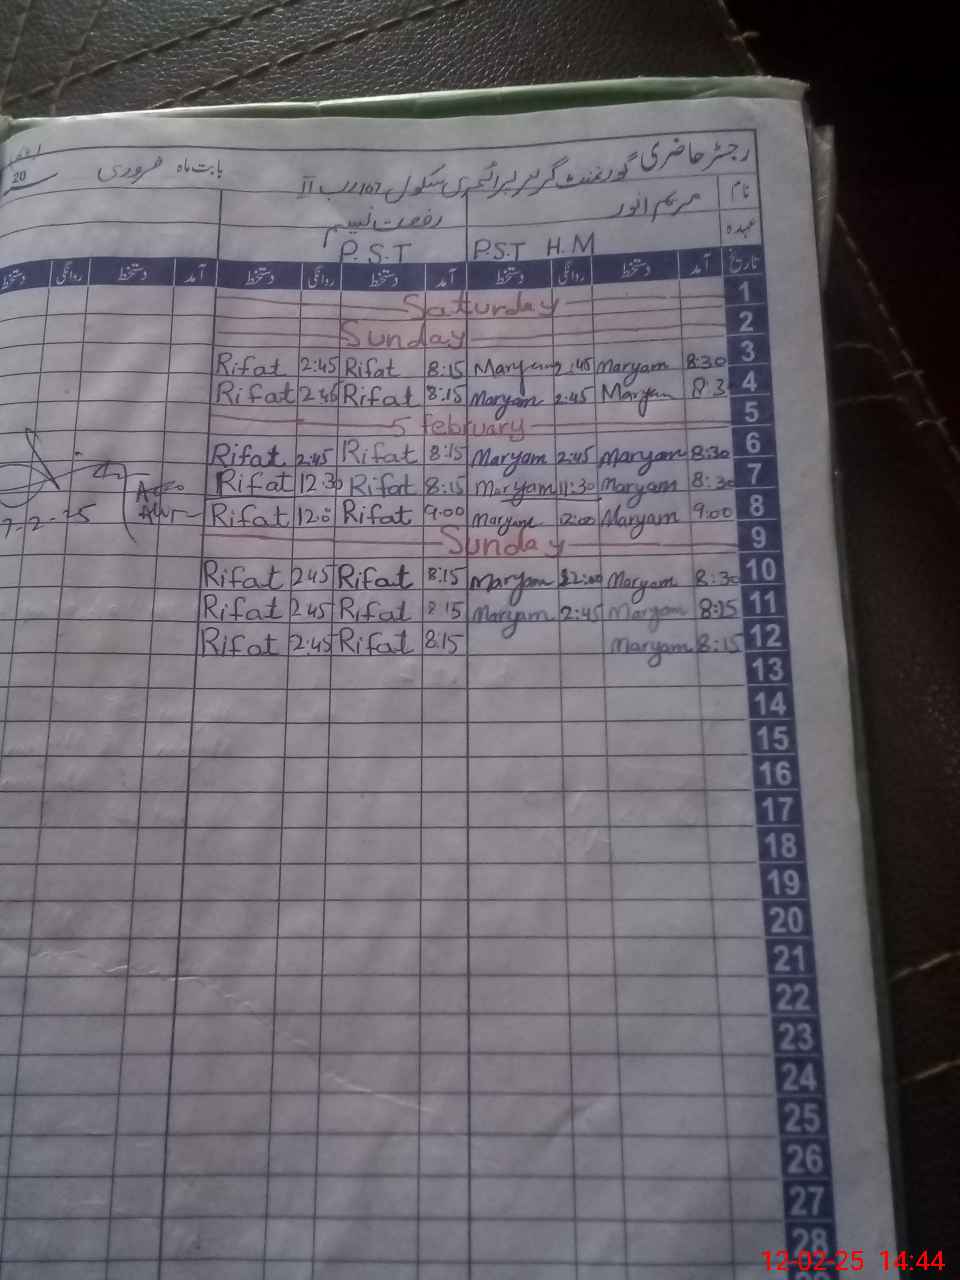 رجسٹر حاضری گورنمنٹ گرلز پرائمری سکول 167 رب II بابت ماہ فروری 20
نام مریم انور رفعت نسیم
عہدہ P.S.T H.M P.S.T
تاریخ آمد دستخط روانگی دستخط آمد دستخط روانگی دستخط آمد دستخط روانگی دستخط
1 Saturday
2 Sunday
3 8:30 Maryam 2:45 Maryam 8:15 Rifat 2:45 Rifat
4 8:3 Maryam 2:45 Maryam 8:15 Rifat 2:45 Rifat
5 5 february
6 8:30 Maryam 2:45 Maryam 8:15 Rifat 2:45 Rifat
7 8:30 Maryam 11:30 Maryam 8:15 Rifat 12:30 Rifat
8 9:00 Maryam 12:00 Maryam 9:00 Rifat 12:0 Rifat
7-2-25
9 Sunday
10 8:30 Maryam 12:00 Maryam 8:15 Rifat 2:45 Rifat
11 8:15 Maryam 2:45 Maryam 8:15 Rifat 2:45 Rifat
12 8:15 Maryam 8:15 Rifat 2:45 Rifat
13
14
15
16
17
18
19
20
21
22
23
24
25
26
27
28
12-02-25 14:44